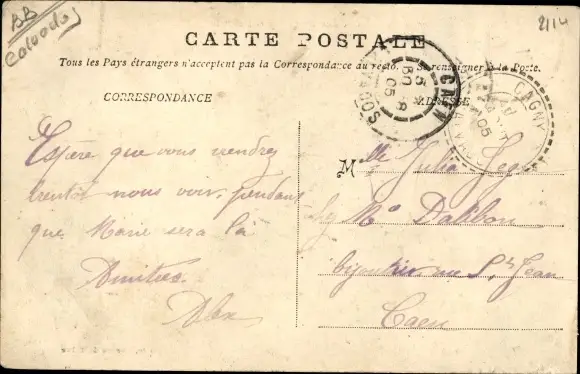 BB
Calvados
2114
CARTE POSTALE
Tous les Pays étrangers n'acceptent pas la Correspondance au recto. Se renseigner à la Poste.
CORRESPONDANCE
ADRESSE
CAEN
05
CAGNY
05
J'espère que vous viendrez
bientôt nous voir, pendant
que Marie sera là
Amitiés
Alex
Mlle Julia
Mo Dalibon
bijoutier rue St Jean
Caen